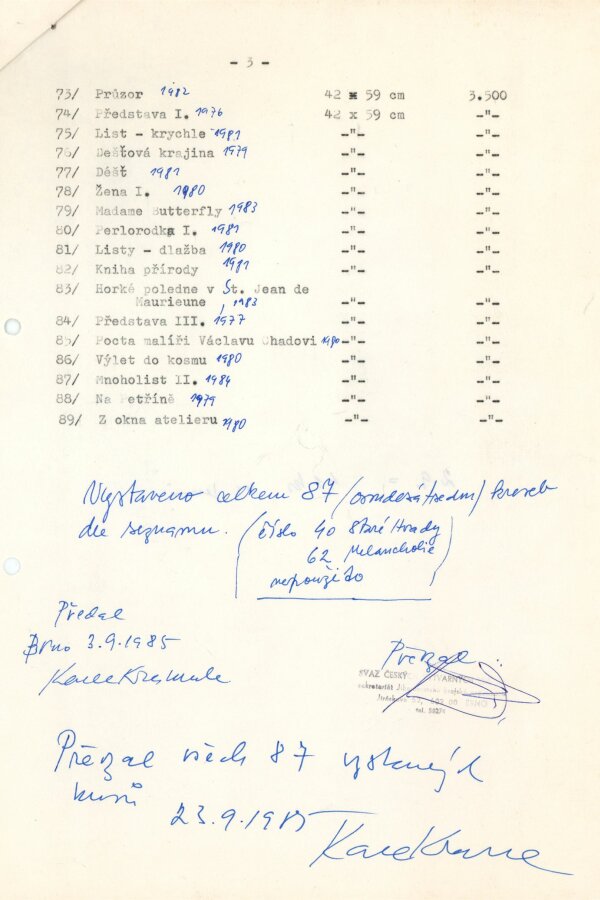 - 3 -
73/ Průzor 1982 42 x 59 cm 3.500
74/ Představa I. 1976 42 x 59 cm -"-
75/ List - krychle 1981 -"- -"-
76/ Dešťová krajina 1979 -"- -"-
77/ Déšť 1981 -"- -"-
78/ Žena I. 1980 -"- -"-
79/ Madame Butterfly 1983 -"- -"-
80/ Perlorodka I. 1981 -"- -"-
81/ Listy - dlažba 1980 -"- -"-
82/ Kniha přírody 1981 -"- -"-
83/ Horké poledne v St. Jean de
Maurieune 1983 -"- -"-
84/ Představa III. 1977 -"- -"-
85/ Pocta malíři Václavu Chadovi 1980 -"- -"-
86/ Výlet do kosmu 1980 -"- -"-
87/ Mnoholist II. 1984 -"- -"-
88/ Na Petříně 1979 -"- -"-
89/ Z okna atelieru 1980 -"- -"-
Vystaveno celkem 87 /osmdesátsedm/ kreseb
dle seznamu. (číslo 40 Staré Hrady
62 Melancholie
nepoužito)
Předal
Brno 3.9.1985
Převzal
SVAZ ČESKÝCH VÝTVARNÝCH
sekretariát
602 00 BRNO
tel.
Převzal všech 87 vystavených
kusů
23.9.1985